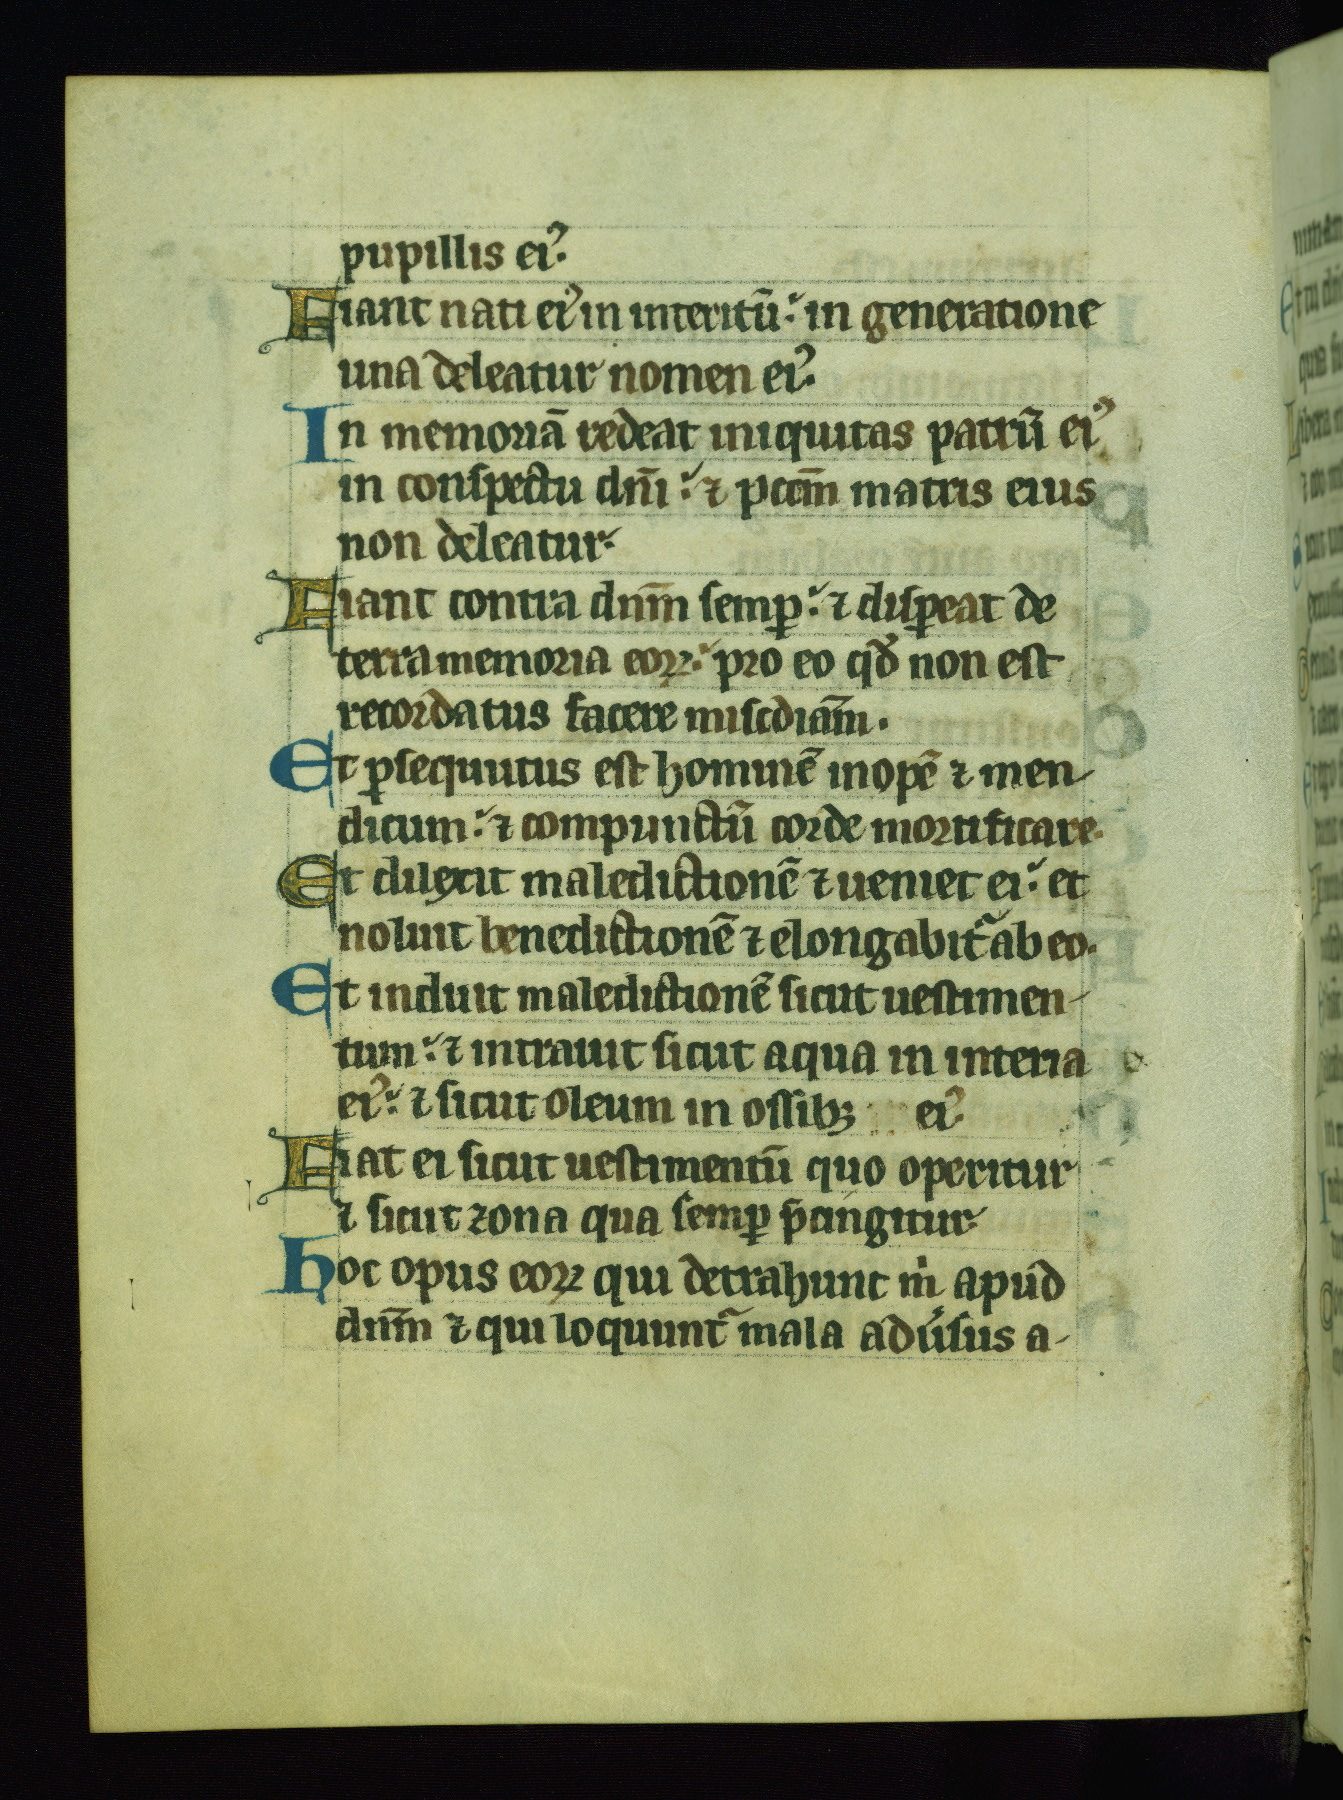 pupillis eiꝰ.
Fiant nati eiꝰ in interitū: in generatione
una deleatur nomen eiꝰ.
In memoriā redeat iniquitas patrū eiꝰ
in conspectu dn̄i: ⁊ pccm̄ matris eius
non deleatur.
Fiant contra dnm̄ semꝑ: ⁊ disꝑeat de
terra memoria eoꝝ: pro eo qđ non est
recordatus facere misc̄diam̄.
Et ꝑsequutus est hominē inopē ⁊ men-
dicum: ⁊ compunctū corde mortificare.
Et dilexit maledictionē ⁊ ueniet ei: et
noluit benedictionē ⁊ elongabit᷑ ab eo.
Et induit maledictionē sicut uestimen-
tum: ⁊ intrauit sicut aqua in interia
eiꝰ: ⁊ sicut oleum in ossibꝫ eiꝰ.
Fiat ei sicut uestimentū quo operitur
⁊ sicut zona qua semꝑ p̄cingitur.
Hoc opus eoꝝ qui detrahunt m̍ apud
dnm̄ ⁊ qui loquunt᷑ mala adu̓sus a-